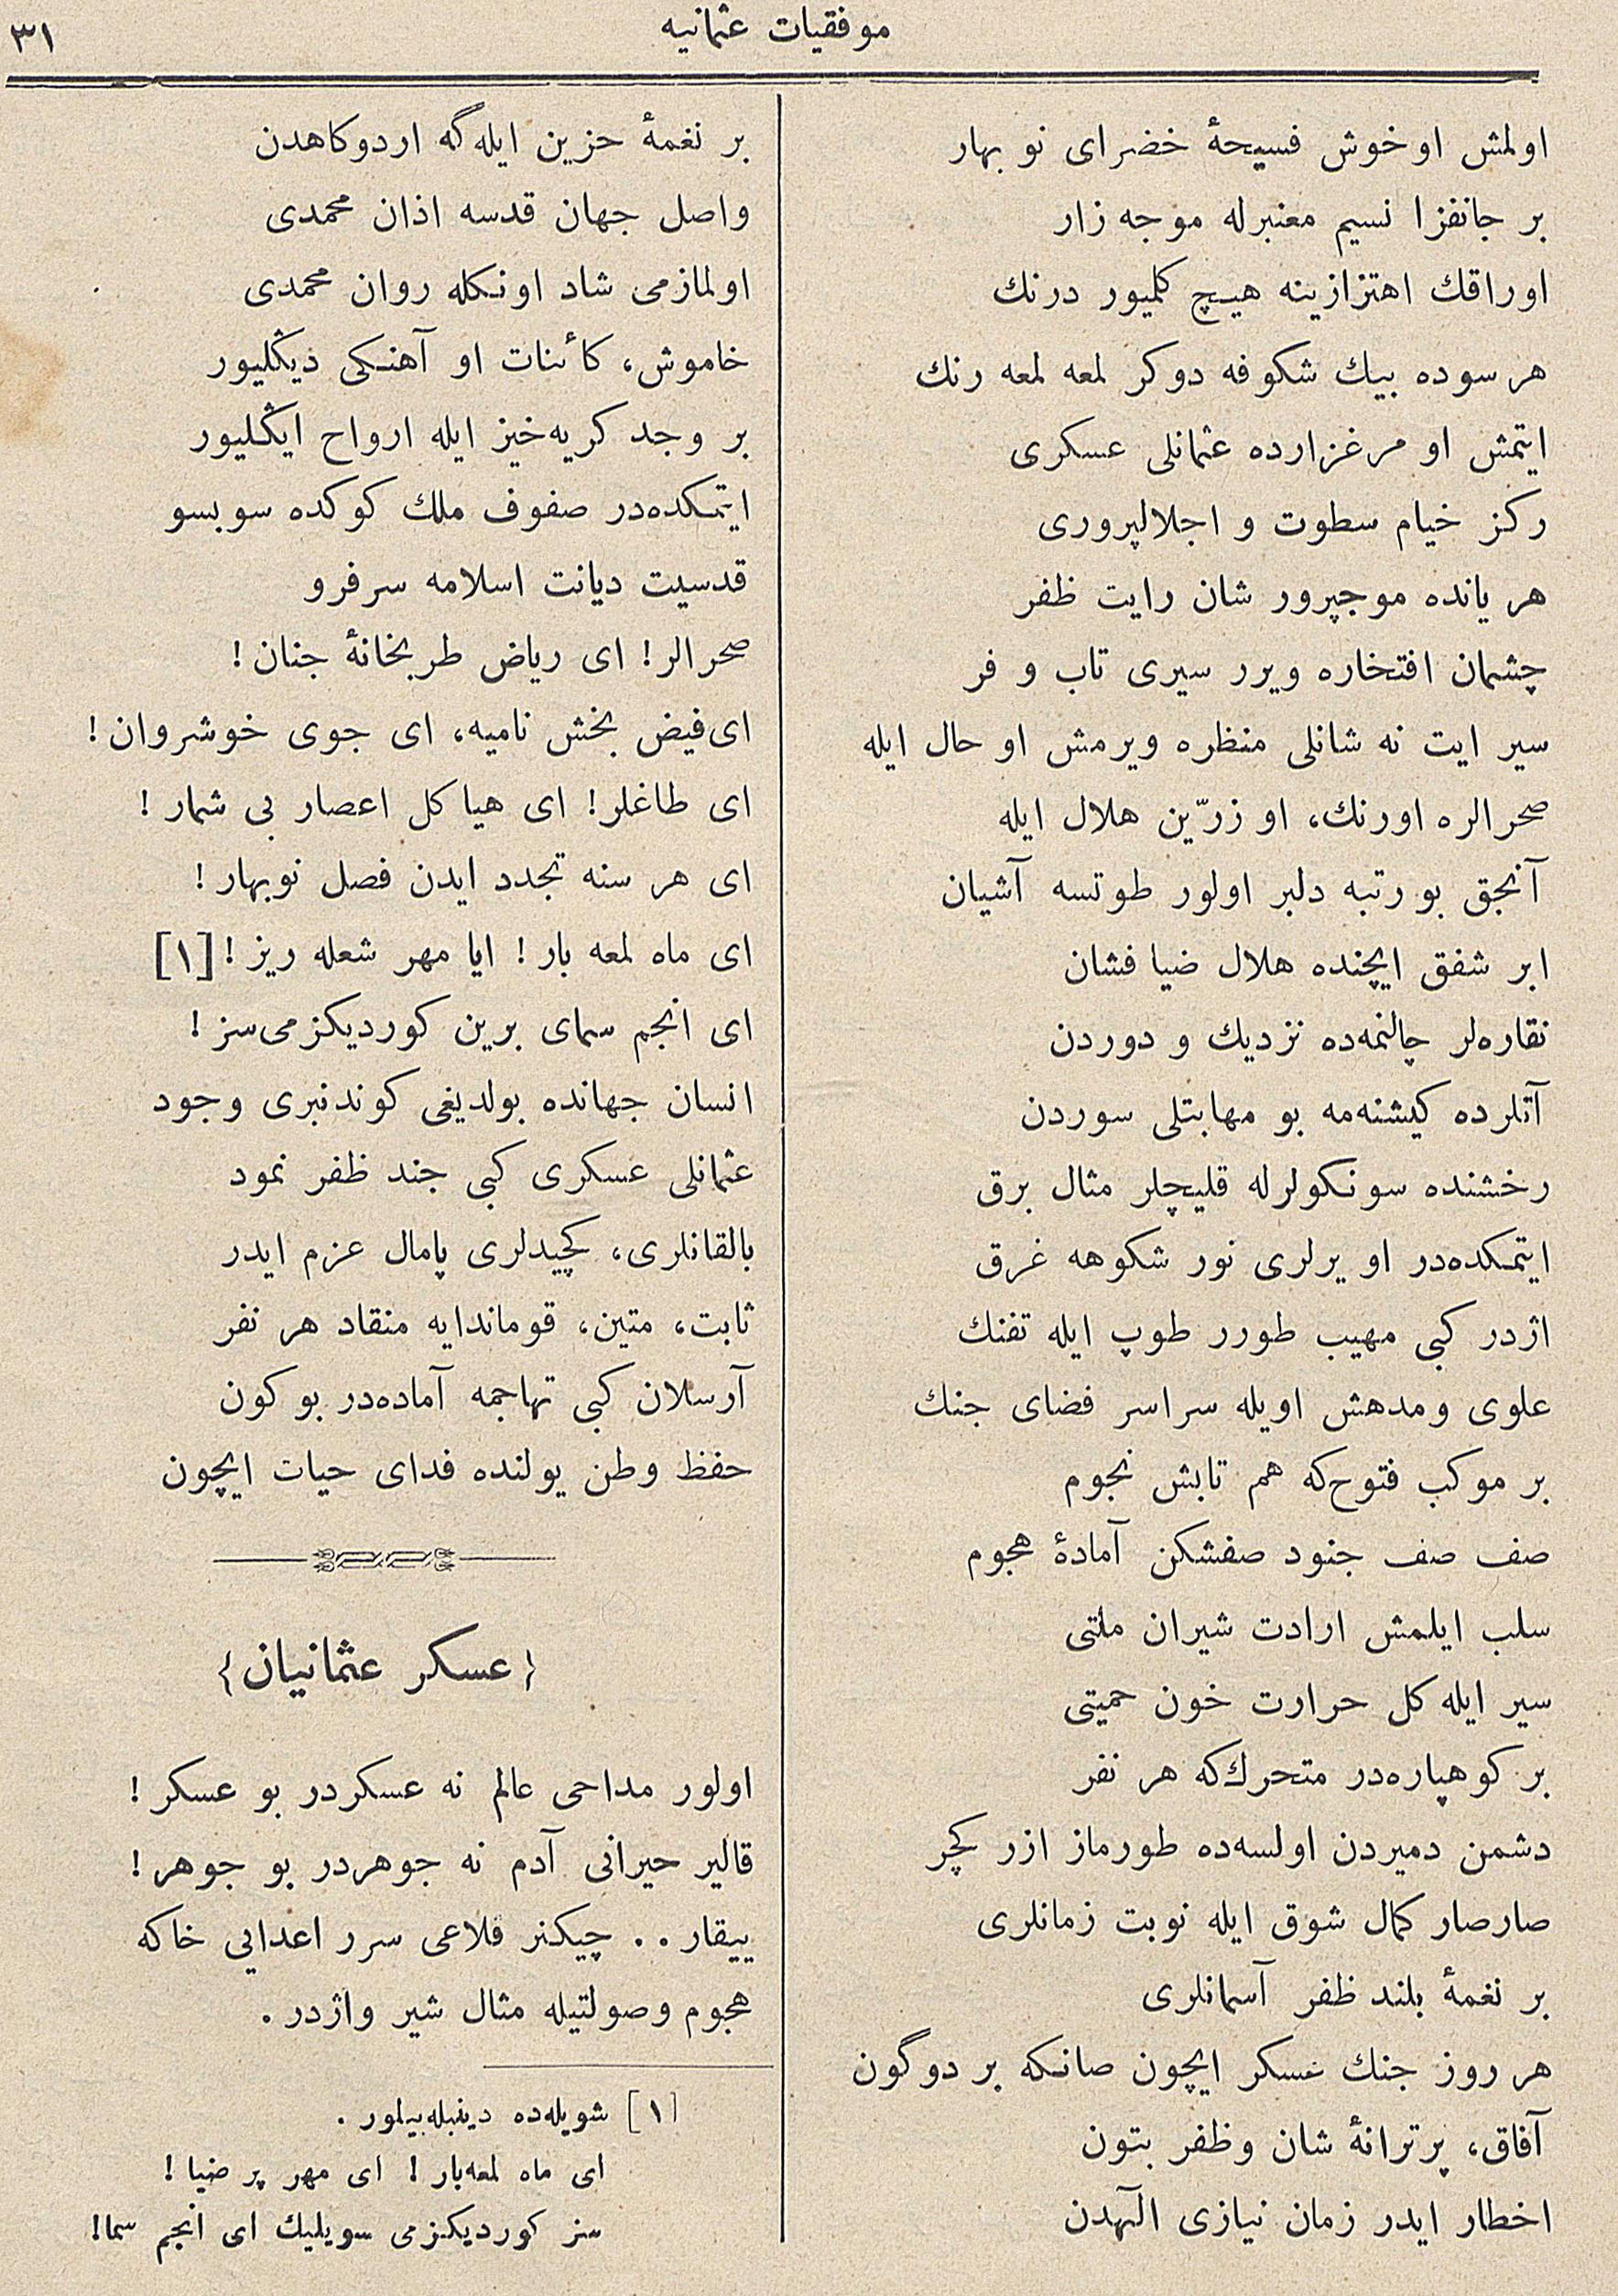 موفقيات عثمانيه
٣١
اولمش او خوش فسيحۀ خضراى نو بهار
بر جانفزا نسيم معنبرله موجه زار
اوراقك اهتزازينه هيچ كلميور درنك
هر سوده بيك شكوفه دوكر لمعه لمعه رنك
ايتمش او مرغزارده عثمانلى عسكرى
ركز خيام سطوت و اجلالپرورى
هر يانده موجپرور شان رايت ظفر
چشمان افتخاره ويرر سيرى تاب و فر
سير ايت نه شانلى منظره ويرمش او حال ايله
صحرالره اورنك، او زرّين هلال ايله
آنجق بو رتبه دلبر اولور طوتسه آشيان
ابر شفق ايچنده هلال ضيا فشان
نقاره‌لر چالنمه‌ده نزديك و دوردن
آتلرده كيشنه‌مه بو مهابتلى سوردن
رخشنده سونكولرله قليچلر مثال برق
ايتمكده‌در او يرلرى نور شكوهه غرق
اژدر كبى مهيب طورر طوپ ايله تفنك
علوى ومدهش اويله سراسر فضاى جنك
بر موكب فتوح‌كه هم تابش نجوم
صف صف جنود صفشكن آمادۀ هجوم
سلب ايلمش ارادت شيران ملتى
سير ايله كل حرارت خون حميتى
بر كوهپاره‌در متحرك‌كه هر نفر
دشمن دميردن اولسه‌ده طورماز ازر كچر
صارصار كمال شوق ايله نوبت زمانلرى
بر نغمۀ بلند ظفر آسمانلرى
هر روز جنك عسكر ايچون صانكه بر دوگون
آفاق، پرترانۀ شان وظفر بتون
اخطار ايدر زمان نيازى الٓهدن
بر نغمۀ حزين ايله گه اردوكاهدن
واصل جهان قدسه اذان محمدى
اولمازمى شاد اونكله روان محمدى
خاموش، كائنات او آهنكى ديڭليور
بر وجد كريه‌خيز ايله ارواح ايڭليور
ايتمكده‌در صفوف ملك كوكده سوبسو
قدسيت ديانت اسلامه سرفرو
صحرالر! اى رياض طربخانۀ جنان!
اى‌فيض بخش ناميه، اى جوى خوشروان!
اى طاغلر! اى هياكل اعصار بى شمار!
اى هر سنه تجدد ايدن فصل نوبهار!
اى ماه لمعه بار! ايا مهر شعله ريز! [١]
اى انجم سماى برين كورديكزمى‌سز!
انسان جهانده بولديغى كوندنبرى وجود
عثمانلى عسكرى كبى جند ظفر نمود
بالقانلرى، كچيدلرى پامال عزم ايدر
ثابت، متين، قوماندايه منقاد هر نفر
آرسلان كبى تهاجمه آماده‌در بو كون
حفظ وطن يولنده فداى حيات ايچون
{عسكر عثمانيان}
اولور مداحى عالم نه عسكردر بو عسكر!
قالير حيرانى آدم نه جوهردر بو جوهر!
ييقار.. چيكنر قلاعى سرر اعدايى خاكه
هجوم وصولتيله مثال شير واژدر.
[١] شويله‌ده دينيله‌بيلور.
اى ماه لمعه‌بار! اى مهر پر ضيا!
سز كورديكزمى سويليك اى انجم سما!